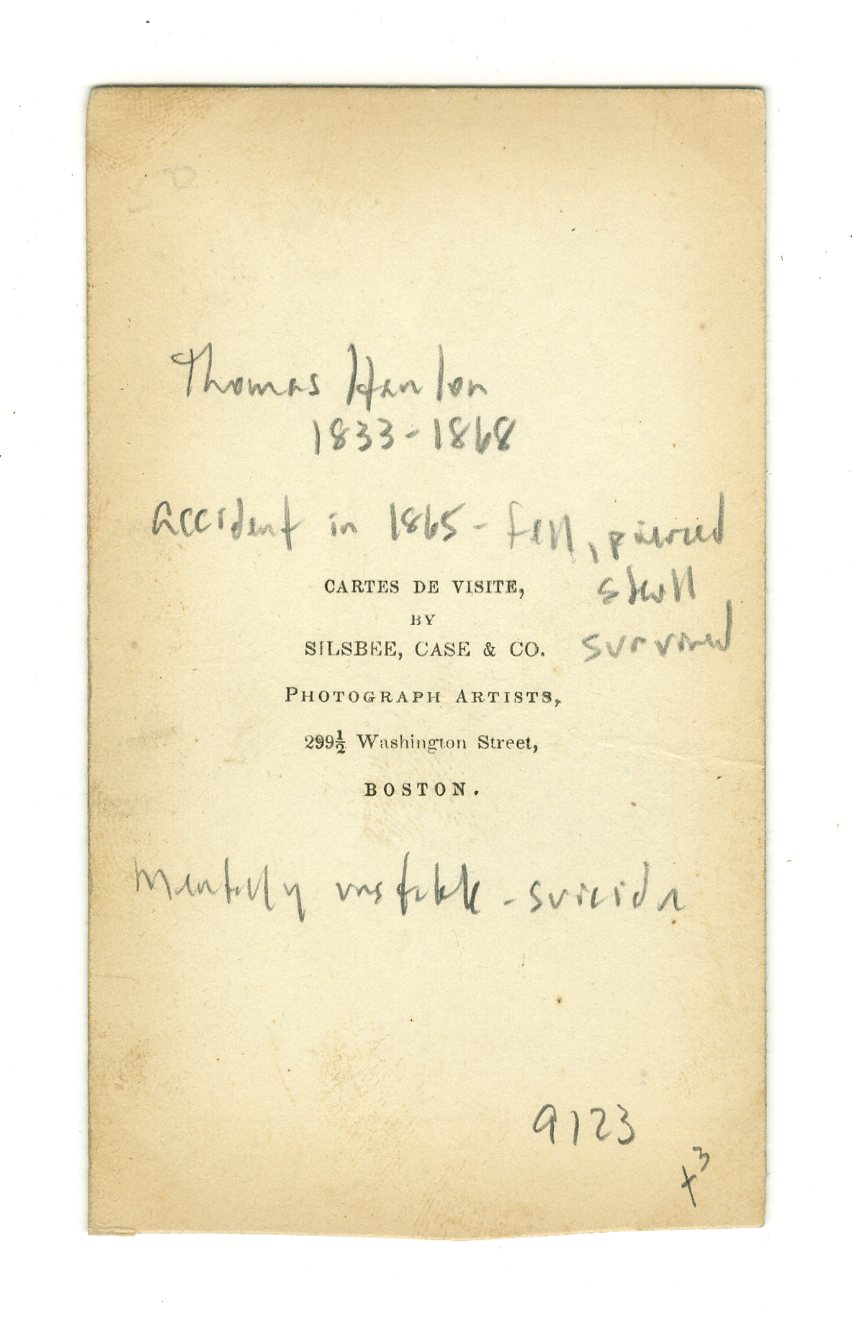 Thomas Hanlon
1833-1868
accident in 1865 - fell, pierced
skull
survived
CARTES DE VISITE,
BY
SILSBEE, CASE & CO.
PHOTOGRAPH ARTISTS,
299½ Washington Street,
BOSTON.
mentally unstable - suicide
9123
x3